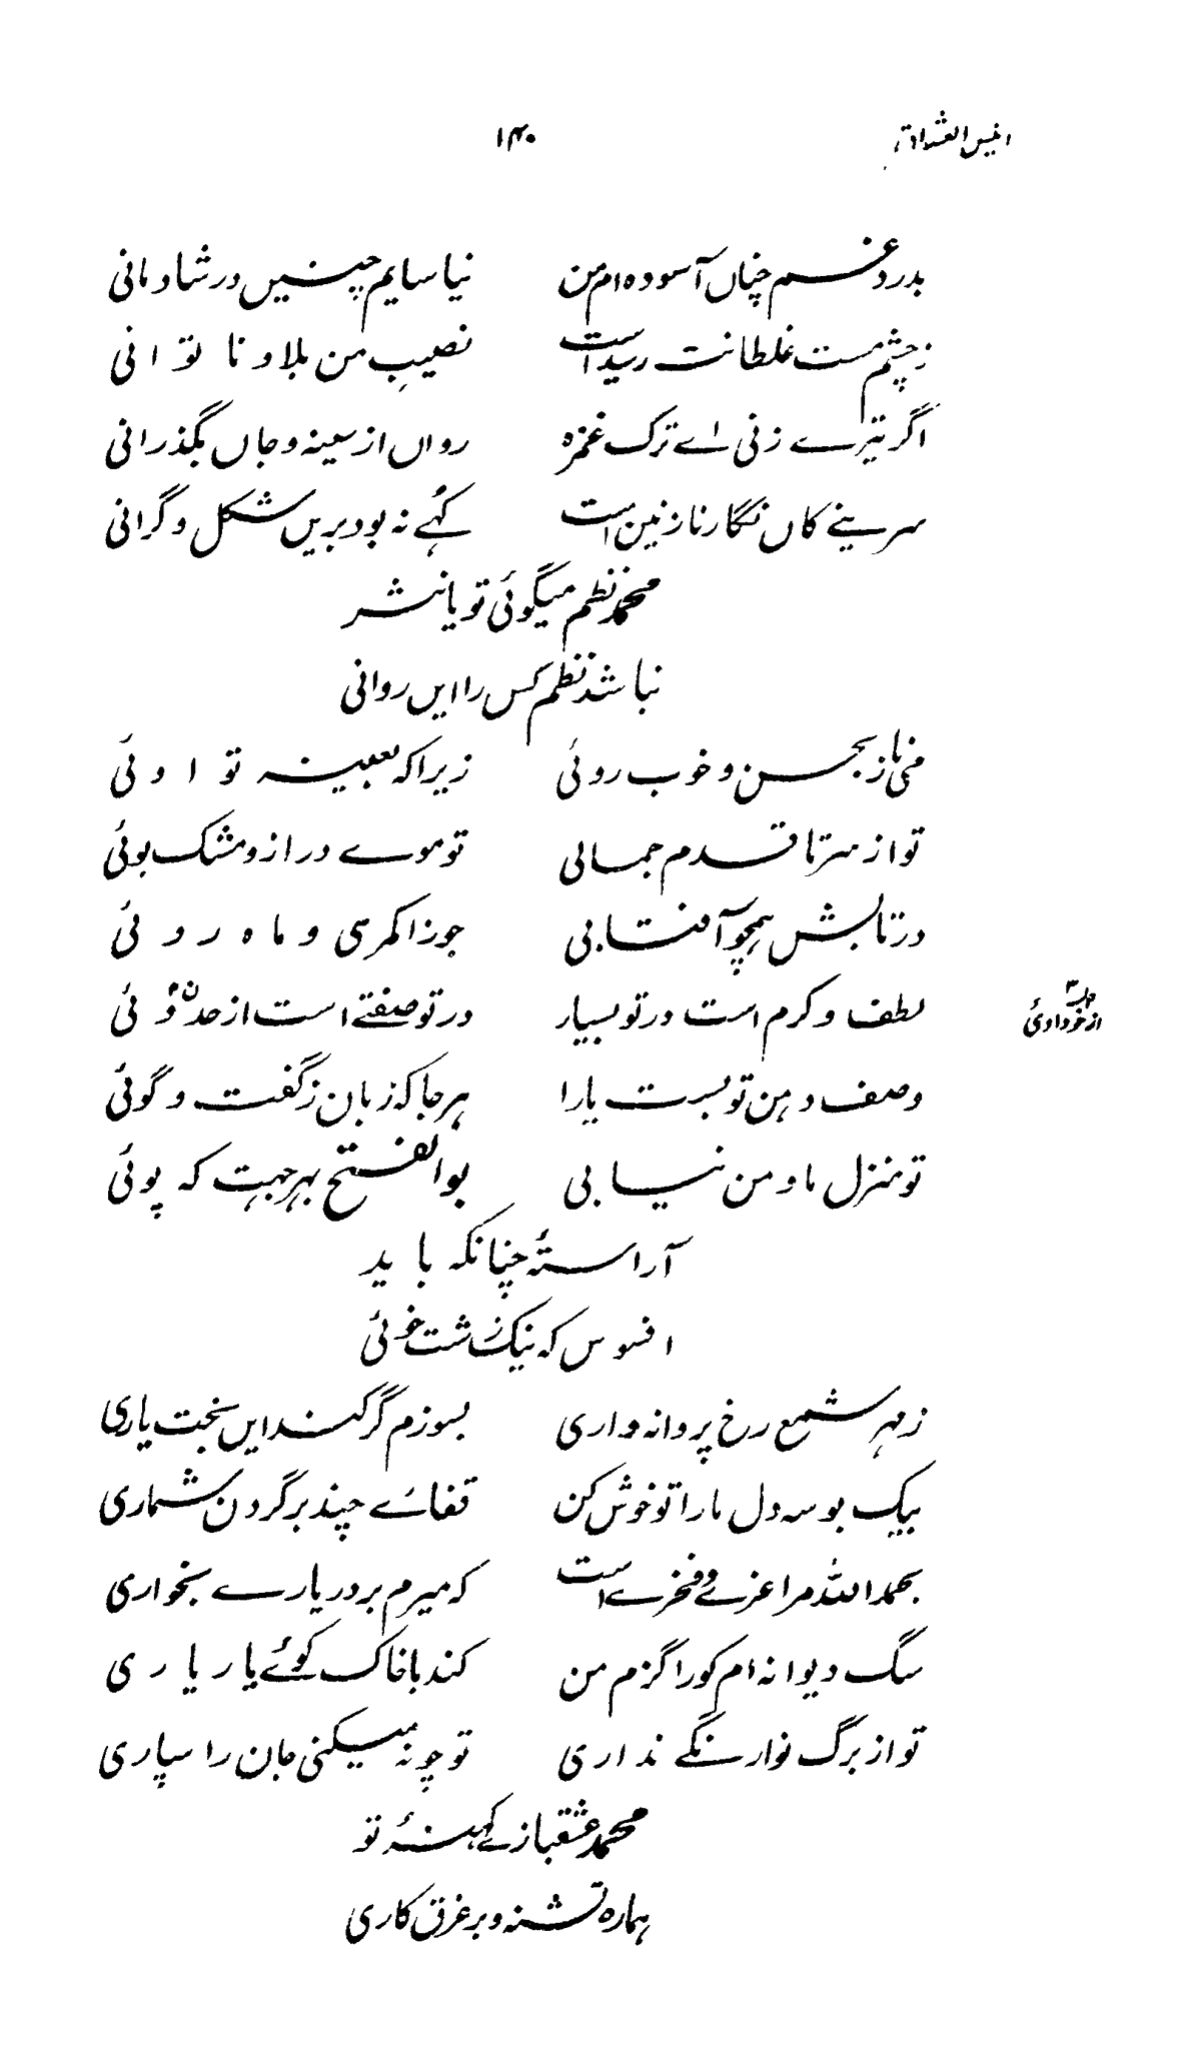 انیس العشاق ۱۴۰
بدرد و غم چناں آسوده ام من نیاسایم چنیں در شادمانی
ز چشم مست غلطانت رسید است نصیبِ من بلا و ناتوانی
اگر تیرے زنی اے ترک غمزه رواں از سینه و جاں بگذرانی
سرینے کاں نگار نازنین است کُہے نه بود بریں شکل و گرانی
محمد نظم میگوئی تو یا نثر
نباشد نظم کس را ایں روانی
می ناز بحسن و خوب روئی زیرا که بعینه تو اوئی
تو از سرتا قدم جمالی تو موے دراز و مشک بوئی
در تابش ہمچو آفتابی جوزا کمری و ماه روئی
لطف و کرم است در تو بسیار در تو صفتے است از حد
وصف دہن تو بست یارا ہر جا که زبان ز گفت و گوئی
تو منزل ما و من نیابی بوالفتح بہر جہت که پوئی
آراستهٔ چنانکه باید
افسوس که نیک زشت خوئی
ز مہر شمع رخ پروانه واری بسوزم گر کند ایں بخت یاری
بیک بوسه دل ما را تو خوش کن قفائے چند برگردن شماری
بحمد الله مرا عزے و فخرے است که میرم بر در یارے بخواری
سگ دیوانه ام کورا گزم من کند با خاک کوئے یار یاری
تو از برگ نوا رنگے نداری تو چونه میکنی جان را سپاری
محمد عشقبازے کہنهٔ تو
ہماره تشنه و بر غرق کاری